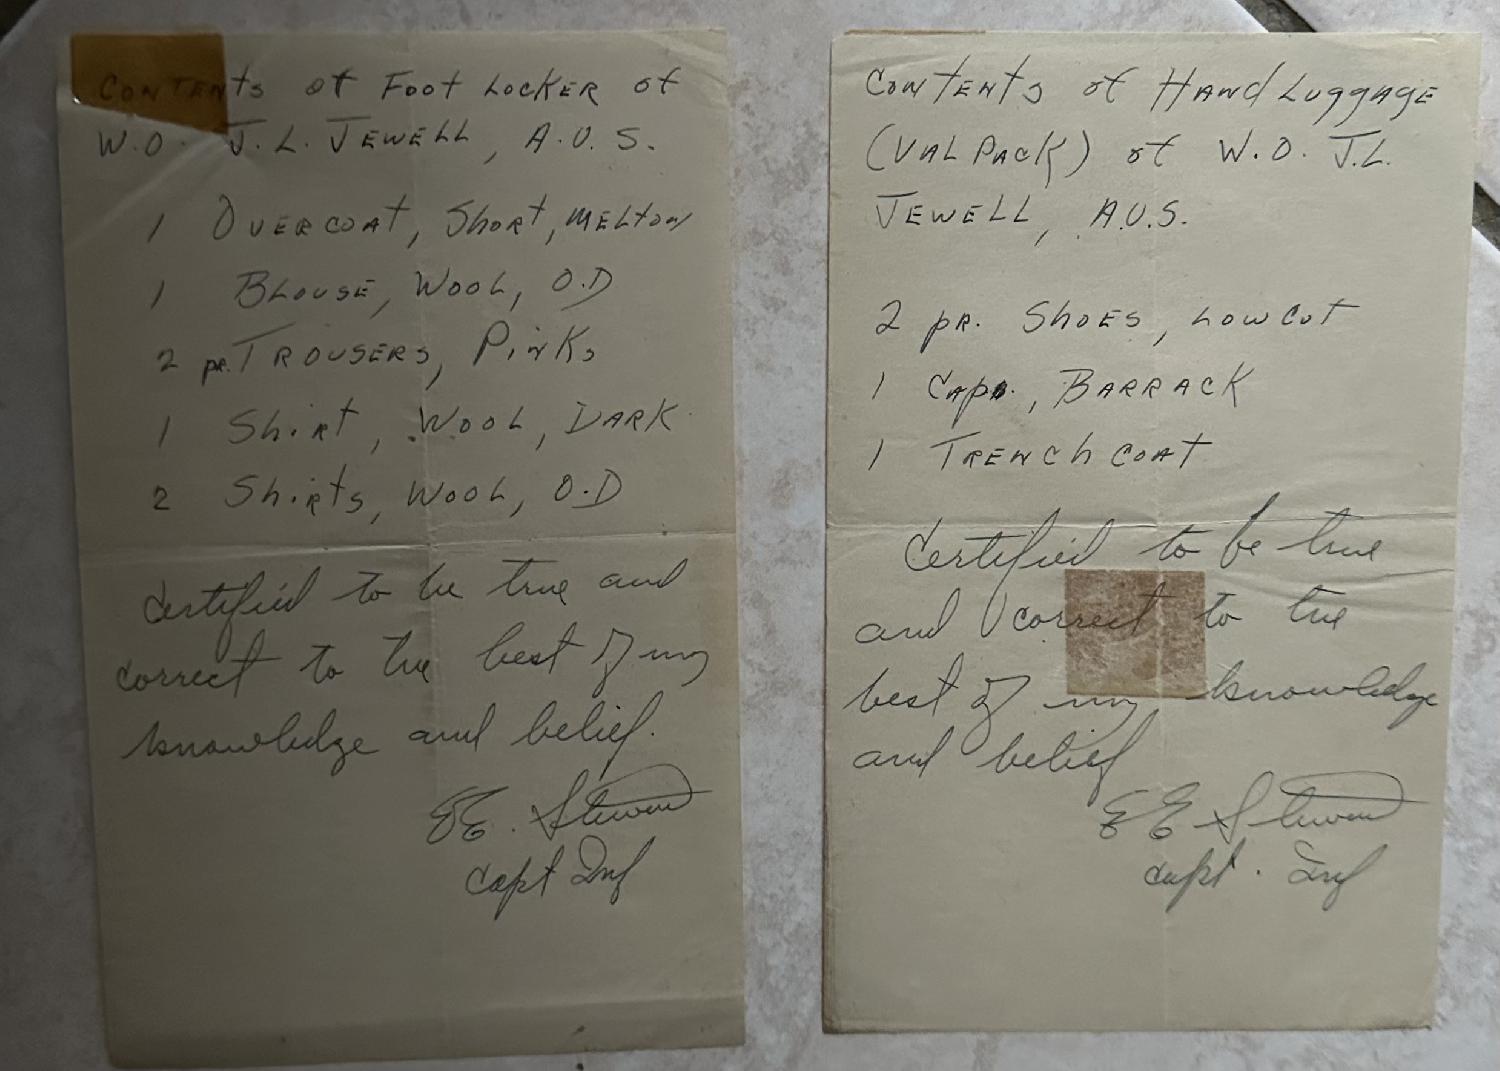 Contents of Foot Locker of
W.O. J.L. Jewell, A.U.S.
1 Overcoat, Short, Melton
1 Blouse, Wool, O.D
2 pr. Trousers, Pinks
1 Shirt, Wool, Dark
2 Shirts, Wool, O.D
Certified to be true and
correct to the best of my
knowledge and belief.
E.E. Steward
Capt Inf
Contents of Hand Luggage
(Val Pack) of W.O. J.L.
Jewell, A.U.S.
2 pr. Shoes, Low cut
1 Cap, Barrack
1 Trench coat
Certified to be true
and correct to the
best of my knowledge
and belief
E E Steward
Capt. Inf